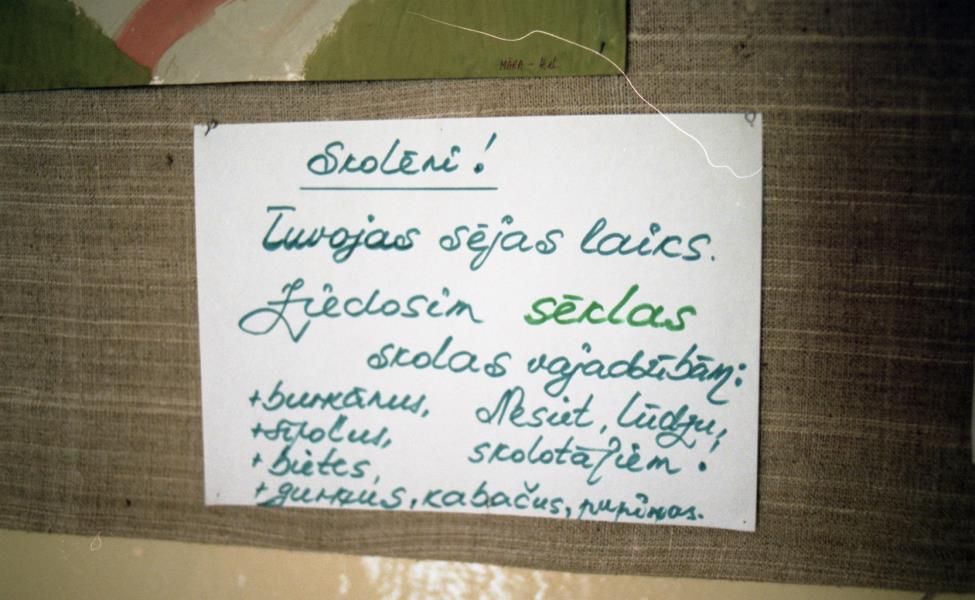 MĀRA - 4.d.
Skolēni!
Tuvojas sējas laiks.
Ziedosim sēklas
skolas vajadzībām:
+burkānus,
+sīpolus,
+bietes,
+gurķus, kabačus, pupiņas.
Nesiet, lūdzu,
skolotājiem!